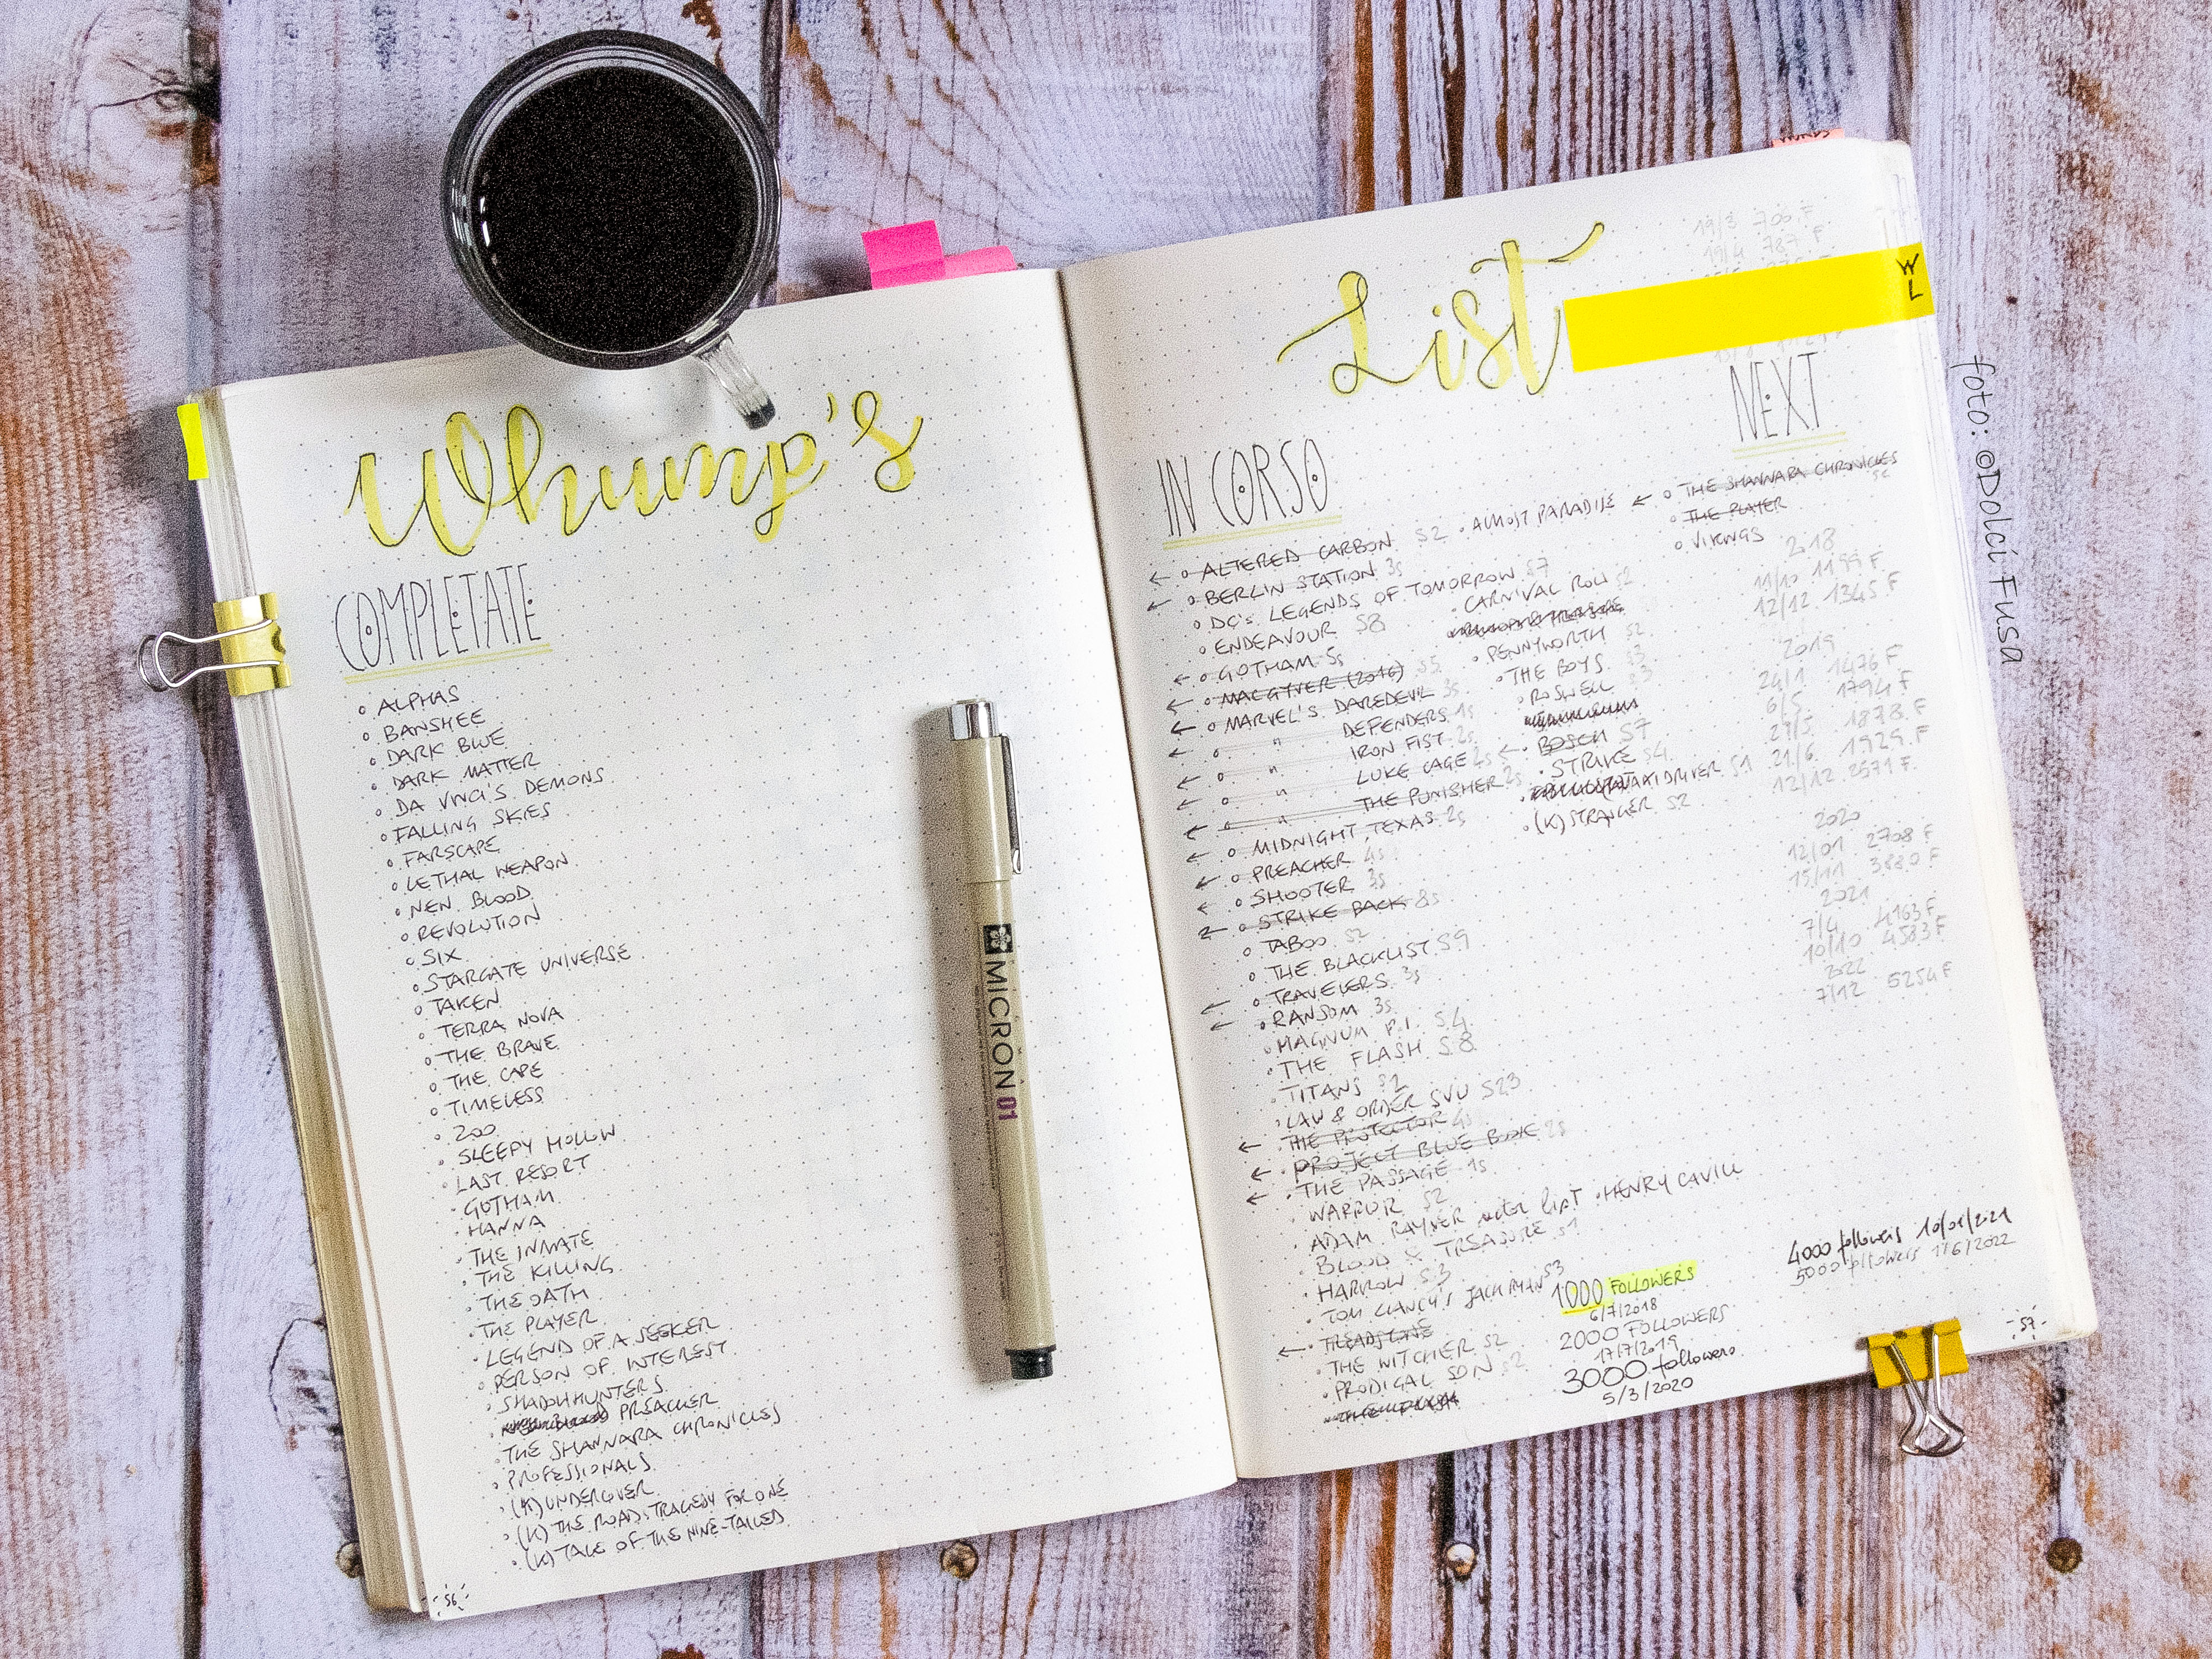 Whump's
COMPLETATE
ALPHAS
BANSHEE
DARK BLUE
DARK MATTER
DA VINCI'S DEMONS
FALLING SKIES
FARSCAPE
LETHAL WEAPON
NEW BLOOD
REVOLUTION
SIX
STARGATE UNIVERSE
TAKEN
TERRA NOVA
THE BRAVE
THE CAPE
TIMELESS
ZOO
SLEEPY HOLLOW
LAST RESORT
GOTHAM
HANNA
THE INMATE
THE KILLING
THE OATH
THE PLAYER
LEGEND OF A SEEKER
PERSON OF INTEREST
SHADOWHUNTERS
PREACHER
THE SHANNARA CHRONICLES
PROFESSIONALS
(K) UNDERCOVER
(K) THE ROAD: TRAGEDY FOR ONE
(K) TALE OF THE NINE-TAILED
56
MICRON 01
List
WL
IN CORSO
ALTERED CARBON S2
BERLIN STATION 3s
DC's LEGENDS OF TOMORROW S7
ENDEAVOUR S8
GOTHAM 5s
MACGYVER (2016) S5
MARVEL'S DAREDEVIL 3s
" DEFENDERS 1s
" IRON FIST 2s
" LUKE CAGE 2s
" THE PUNISHER 2s
MIDNIGHT TEXAS 2s
PREACHER 4s
SHOOTER 3s
STRIKE BACK 8s
TABOO S2
THE BLACKLIST S9
TRAVELERS 3s
RANSOM 3s
MAGNUM P.I. S4
THE FLASH S8
TITANS S2
LAW & ORDER SVU S23
THE PROTECTOR 4s
PROJECT BLUE BOOK 2s
THE PASSAGE 1s
WARRIOR S2
ADAM RAYNER LIST • HENRY CAVILL
BLOOD & TREASURE S1
HARROW S3
TOM CLANCY'S JACK RYAN S3
TREADSTONE
THE WITCHER S2
PRODIGAL SON S2
ALMOST PARADISE
CARNIVAL ROW S2
PENNYWORTH S2
THE BOYS S3
ROSWELL S3
BOSCH S7
STRIKE S4
TAXI DRIVER S1
(K) STRANGER S2
NEXT
THE SHANNARA CHRONICLES
THE PLAYER
VIKINGS
19/3 700 F
19/4 787 F
2018
11/10 1199 F
12/12 1345 F
2019
24/1 1476 F
6/5 1794 F
29/5 1878 F
21/6 1929 F
12/12 2571 F
2020
12/01 2708 F
15/11 3880 F
2021
7/4 4163 F
10/10 4583 F
2022
7/12 5254 F
1000 FOLLOWERS
6/7/2018
2000 FOLLOWERS
17/7/2019
3000 followers
5/3/2020
4000 followers 10/01/2021
5000 followers 1/6/2022
57
foto: ©Dolci Fusa